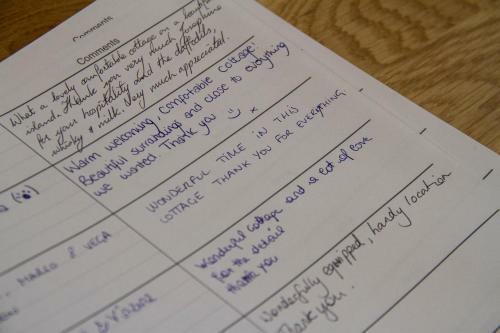 Comments
Comments
What a lovely comfortable cottage on a beautiful
island. Thank you very much Josephine
for your hospitality and the daffodils,
whisky & milk. Very much appreciated.
Warm welcoming, comfortable cottage.
Beautiful surroundings and close to everything
we wanted. Thank you x
WONDERFUL TIME IN THIS
COTTAGE THANK YOU FOR EVERYTHING.
MARCO & VEGA
Wonderful cottage and a lot of care
for the detail
thank you
Wonderfully equipped, handy location
Thank you.